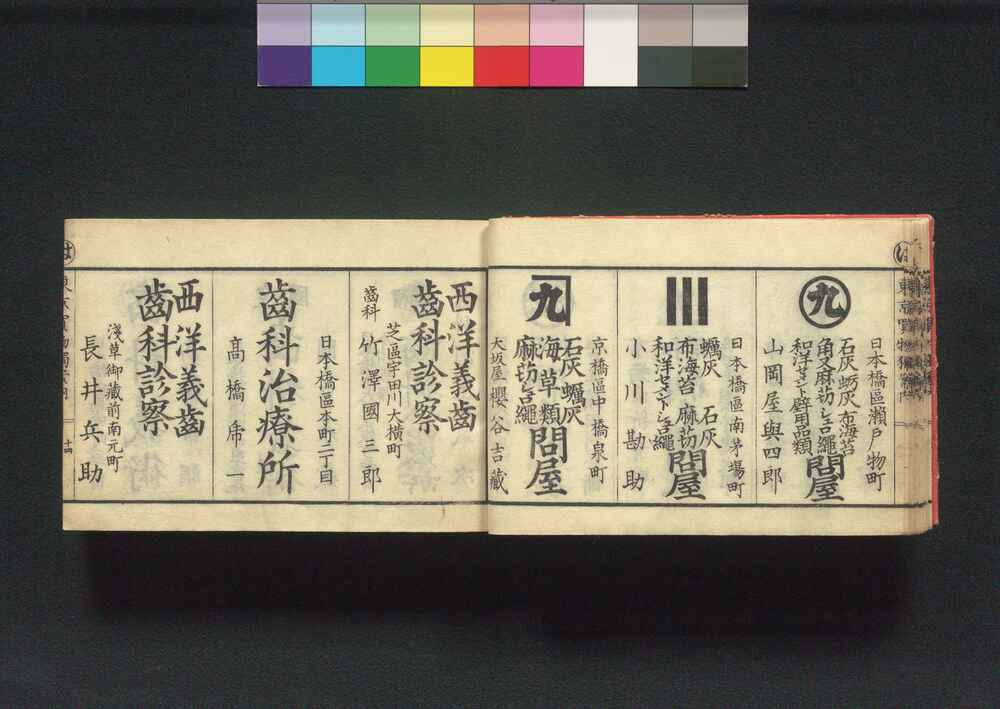 は
日本橋區瀨戸物町
九
石灰 蛎灰 布海苔
角又 麻苆 シュロ繩
和洋セメント 壁用品類
問屋
山岡屋與四郎
日本橋區南茅場町
蠣灰 石灰
布海苔 麻苆
和洋セメント シュロ繩
問屋
小川勘助
京橋區中橋泉町
九
石灰 蠣灰
海草類
麻苆 シュロ繩
問屋
大坂屋 櫻谷吉藏
西洋義齒
齒科診察
芝區宇田川大橫町
齒科 竹澤國三郎
日本橋區本町二丁目
齒科治療所
高橋
一
西洋義齒
齒科診察
淺草御藏前南元町
長井兵助
は